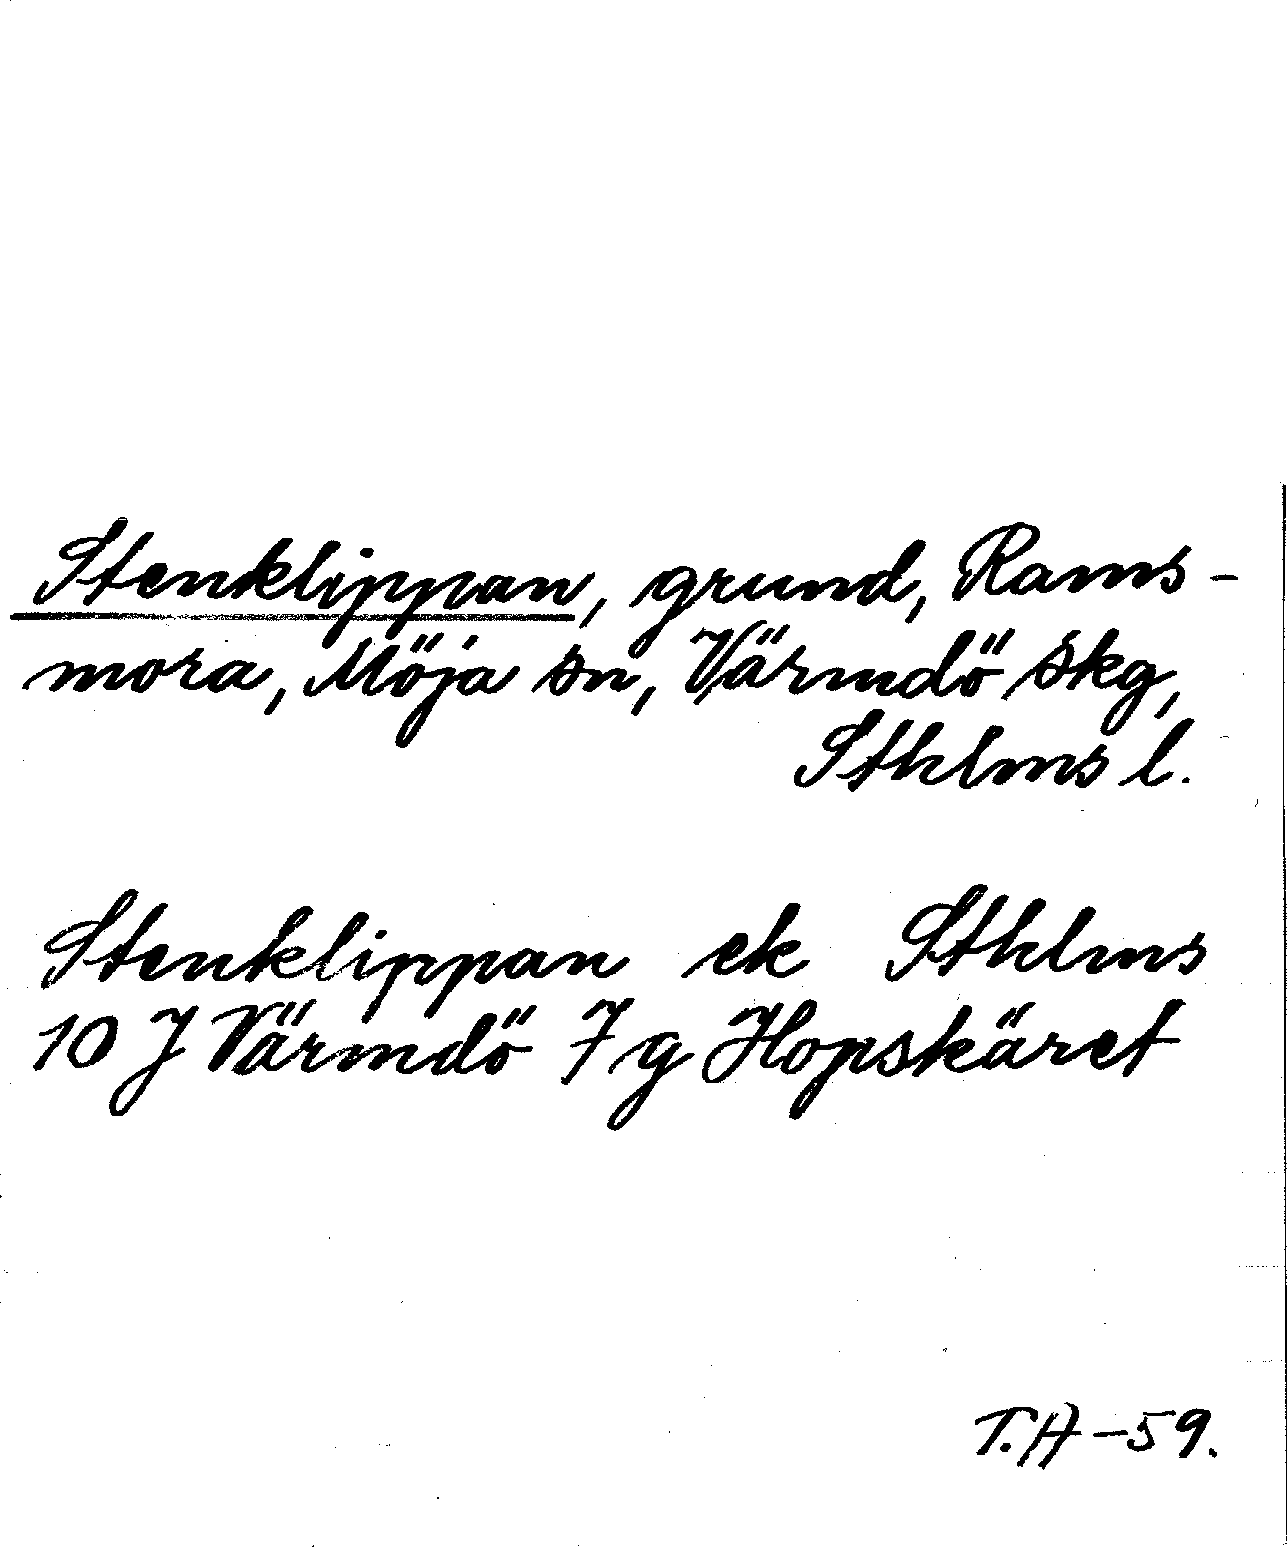 Stenklippan, grund, Rams-
mora, Möja sn, Värmdö skg,
Sthlms l.
Stenklippan ek Sthlms
10 J Värmdö 7 g Hopskäret
T.H -59.